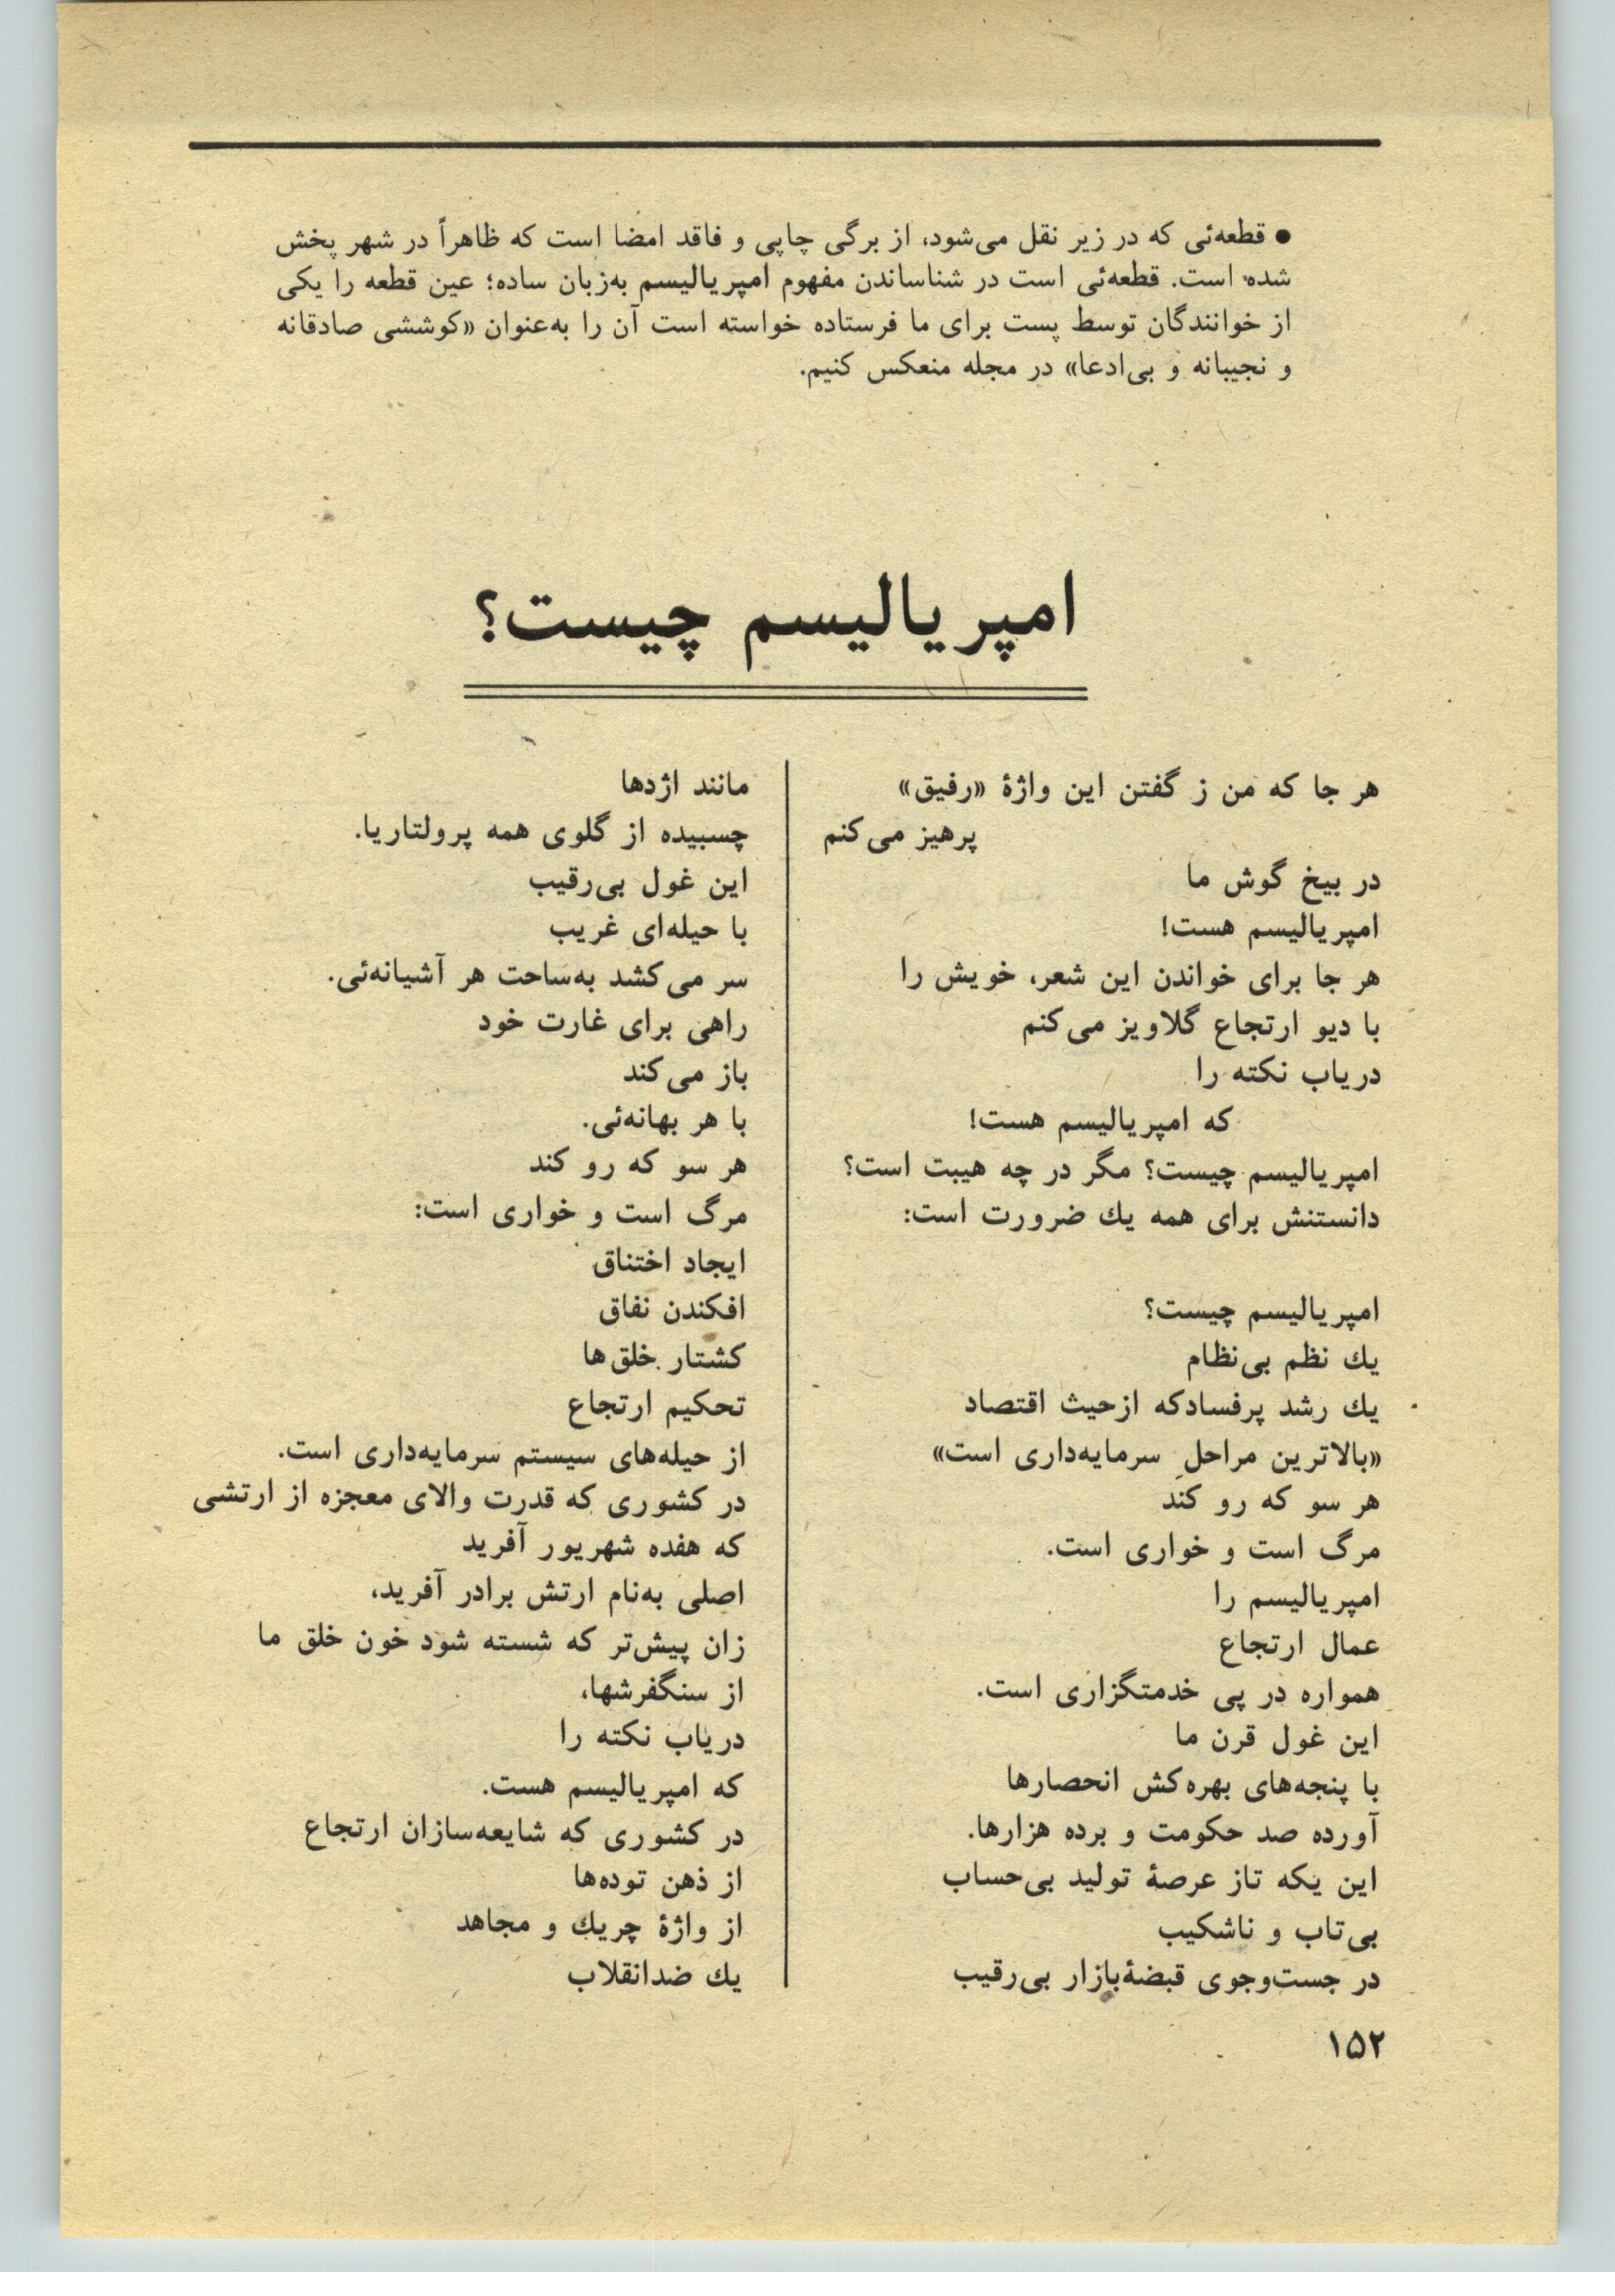 ● قطعه‌ئی که در زیر نقل می‌شود، از برگی چاپی و فاقد امضا است که ظاهراً در شهر پخش
شده است. قطعه‌ئی است در شناساندن مفهوم امپریالیسم به‌زبان ساده؛ عین قطعه را یکی
از خوانندگان توسط پست برای ما فرستاده خواسته است آن را به‌عنوان «کوششی صادقانه
و نجیبانه و بی‌ادعا» در مجله منعکس کنیم.
امپریالیسم چیست؟
هر جا که من ز گفتن این واژهٔ «رفیق»
پرهیز می‌کنم
در بیخ گوش ما
امپریالیسم هست!
هر جا برای خواندن این شعر، خویش را
با دیو ارتجاع گلاویز می‌کنم
دریاب نکته را
که امپریالیسم هست!
امپریالیسم چیست؟ مگر در چه هیبت است؟
دانستنش برای همه یك ضرورت است:
امپریالیسم چیست؟
یك نظم بی‌نظام
یك رشد پرفسادکه ازحیث اقتصاد
«بالاترین مراحلِ سرمایه‌داری است»
هر سو که رو کند
مرگ است و خواری است.
امپریالیسم را
عمال ارتجاع
همواره در پی خدمتگزاری است.
این غول قرن ما
با پنجه‌های بهره‌کش انحصارها
آورده صد حکومت و برده هزارها.
این یکه تاز عرصهٔ تولید بی‌حساب
بی‌تاب و ناشکیب
در جست‌وجوی قبضهٔ‌بازار بی‌رقیب
مانند اژدها
چسبیده از گلوی همه پرولتاریا.
این غول بی‌رقیب
با حیله‌ای غریب
سر می‌کشد به‌ساحت هر آشیانه‌ئی.
راهی برای غارت خود
باز می‌کند
با هر بهانه‌ئی.
هر سو که رو کند
مرگ است و خواری است:
ایجاد اختناق
افکندن نفاق
کشتار خلق‌ها
تحکیم ارتجاع
از حیله‌های سیستم سرمایه‌داری است.
در کشوری که قدرت والای معجزه از ارتشی
که هفده شهریور آفرید
اصلی به‌نام ارتش برادر آفرید،
زان پیش‌تر که شسته شود خون خلق ما
از سنگفرشها،
دریاب نکته را
که امپریالیسم هست.
در کشوری که شایعه‌سازان ارتجاع
از ذهن توده‌ها
از واژهٔ چریك و مجاهد
یك ضدانقلاب
۱۵۲